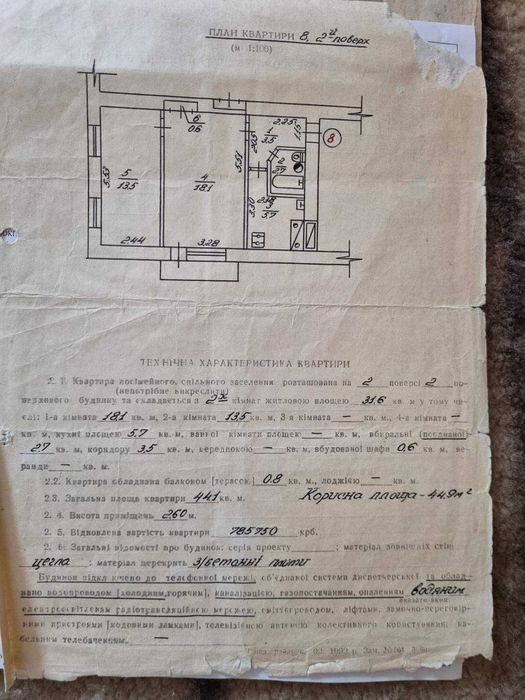 ПЛАН КВАРТИРИ 8, 2й поверх
(м 1:100)
6
0.6
2.25
1
3.5
1.15
8
2.05
2
2.7
5
13.5
5.53
4
18.1
5.51
3.30
3
5.7
2.44
3.28
ТЕХНІЧНА ХАРАКТЕРИСТИКА КВАРТИРИ
2. 1. Квартира посімейного, спільного заселення розташована на 2 поверсі 2 по-
(непотрібне викреслити)
верхового будинку та складається з 2х кімнат житловою площею 31.6 кв м у тому чи-
слі: 1-а кімната 18.1 кв. м, 2-а кімната 13.5 кв. м, 3-я кімната — кв. м., 4-а кімната —
кв. м, кухні площею 5.7 кв. м, ванної кімнати площею — кв. м, вбиральні (поєднаної)
2.7 кв. м, коридору 3.5 кв. м, середпокою — кв. м, вбудованої шафи 0.6 кв. м, ве-
ранди — кв. м.
2.2. Квартира обладнана балконом [терасою] 0.8 кв. м., лоджією — кв. м.
2.3. Загальна площа квартири 44.1 кв. м. Корисна площа - 44.9 м²
2. 4. Висота приміщень 260 м.
2. 5. Відновлена вартість квартири 785750 крб.
2. 6. Загальні відомості про будинок: серія проекту ; матеріал зовнішніх стін
цегла ; матеріал перекрить з/бетонні плити
Будинок підключено до телефонної мережі, об'єднаної системи диспетчерської та облад-
нано водопроводом [холодним, горячим], каналізацією, газопостачанням, опаленням водяним
вказати яким
електроосвітленям радіотрансляційною мережею, сміттєпроводом, ліфтами, замочно-переговір-
ними пристроями [кодовими замками], телевізійною антеною колективного користування, ка-
бельним телебаченням. —